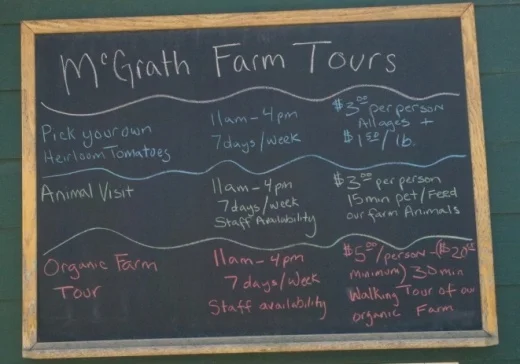 McGrath Farm Tours
Pick your own
Heirloom Tomatoes
11am-4pm
7days/week
$3.00 per person
All ages +
$1.50/lb.
Animal Visit
11am-4pm
7days/week
Staff Availability
$3.00 per person
15min pet/Feed
our farm Animals
Organic Farm
Tour
11am-4pm
7days/week
Staff availability
$5.00/person-($20.00
minimum) 30min
Walking Tour of our
organic Farm